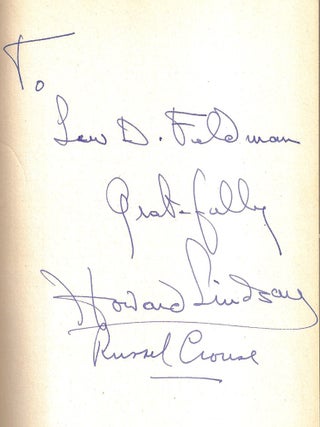 To
Lew D. Feldman
Gratefully
Howard Lindsay
Russel Crouse